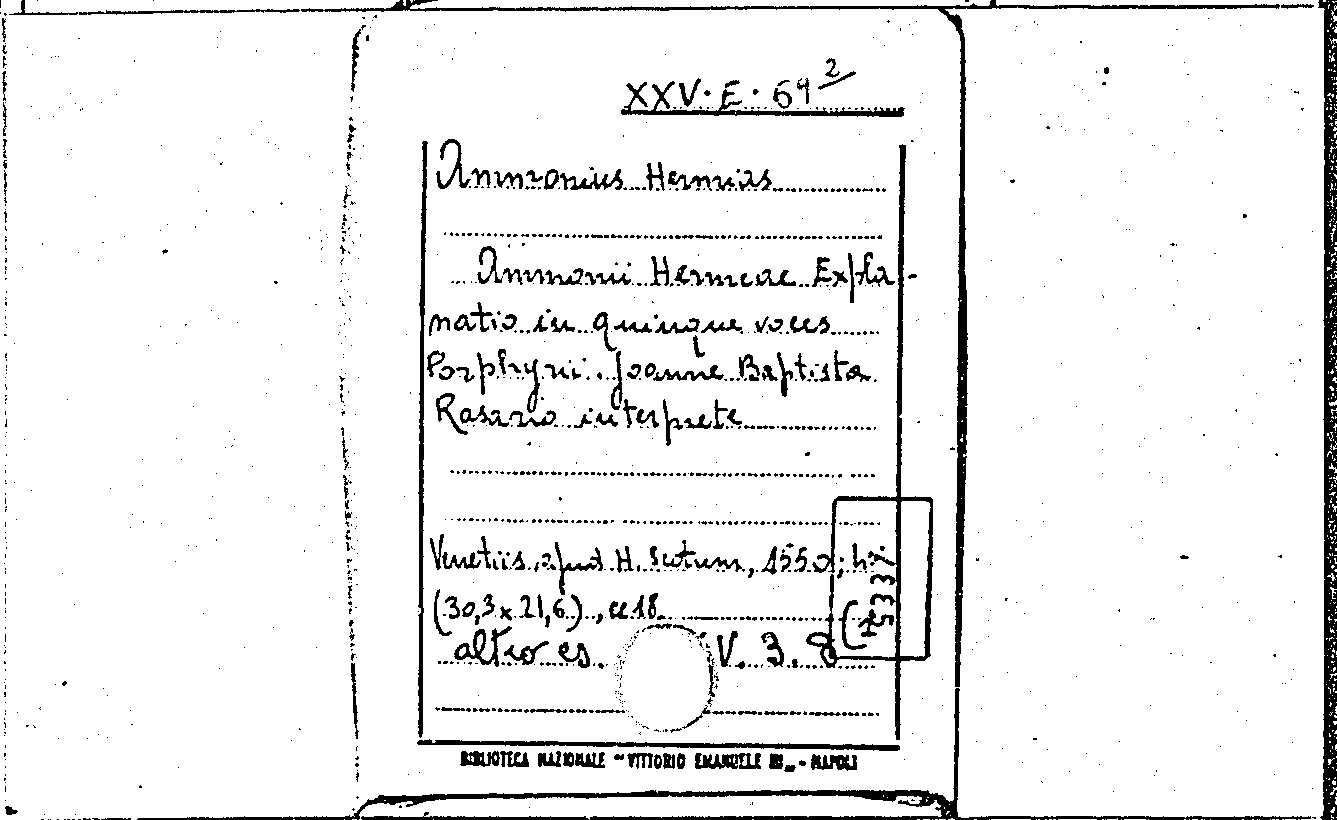 XXV·E·69²
Ammonius Hermias
Ammonii Hermeae Expla-
natio in quinque voces
Porphyrii. Joanne Baptista
Rasario interprete
Venetiis, apud H. Scotum, 1550; h
(30,3 x 21,6)., cc 18.
altro es. V. 3. 8
5337
BIBLIOTECA NAZIONALE "VITTORIO EMANUELE III„ - NAPOLI